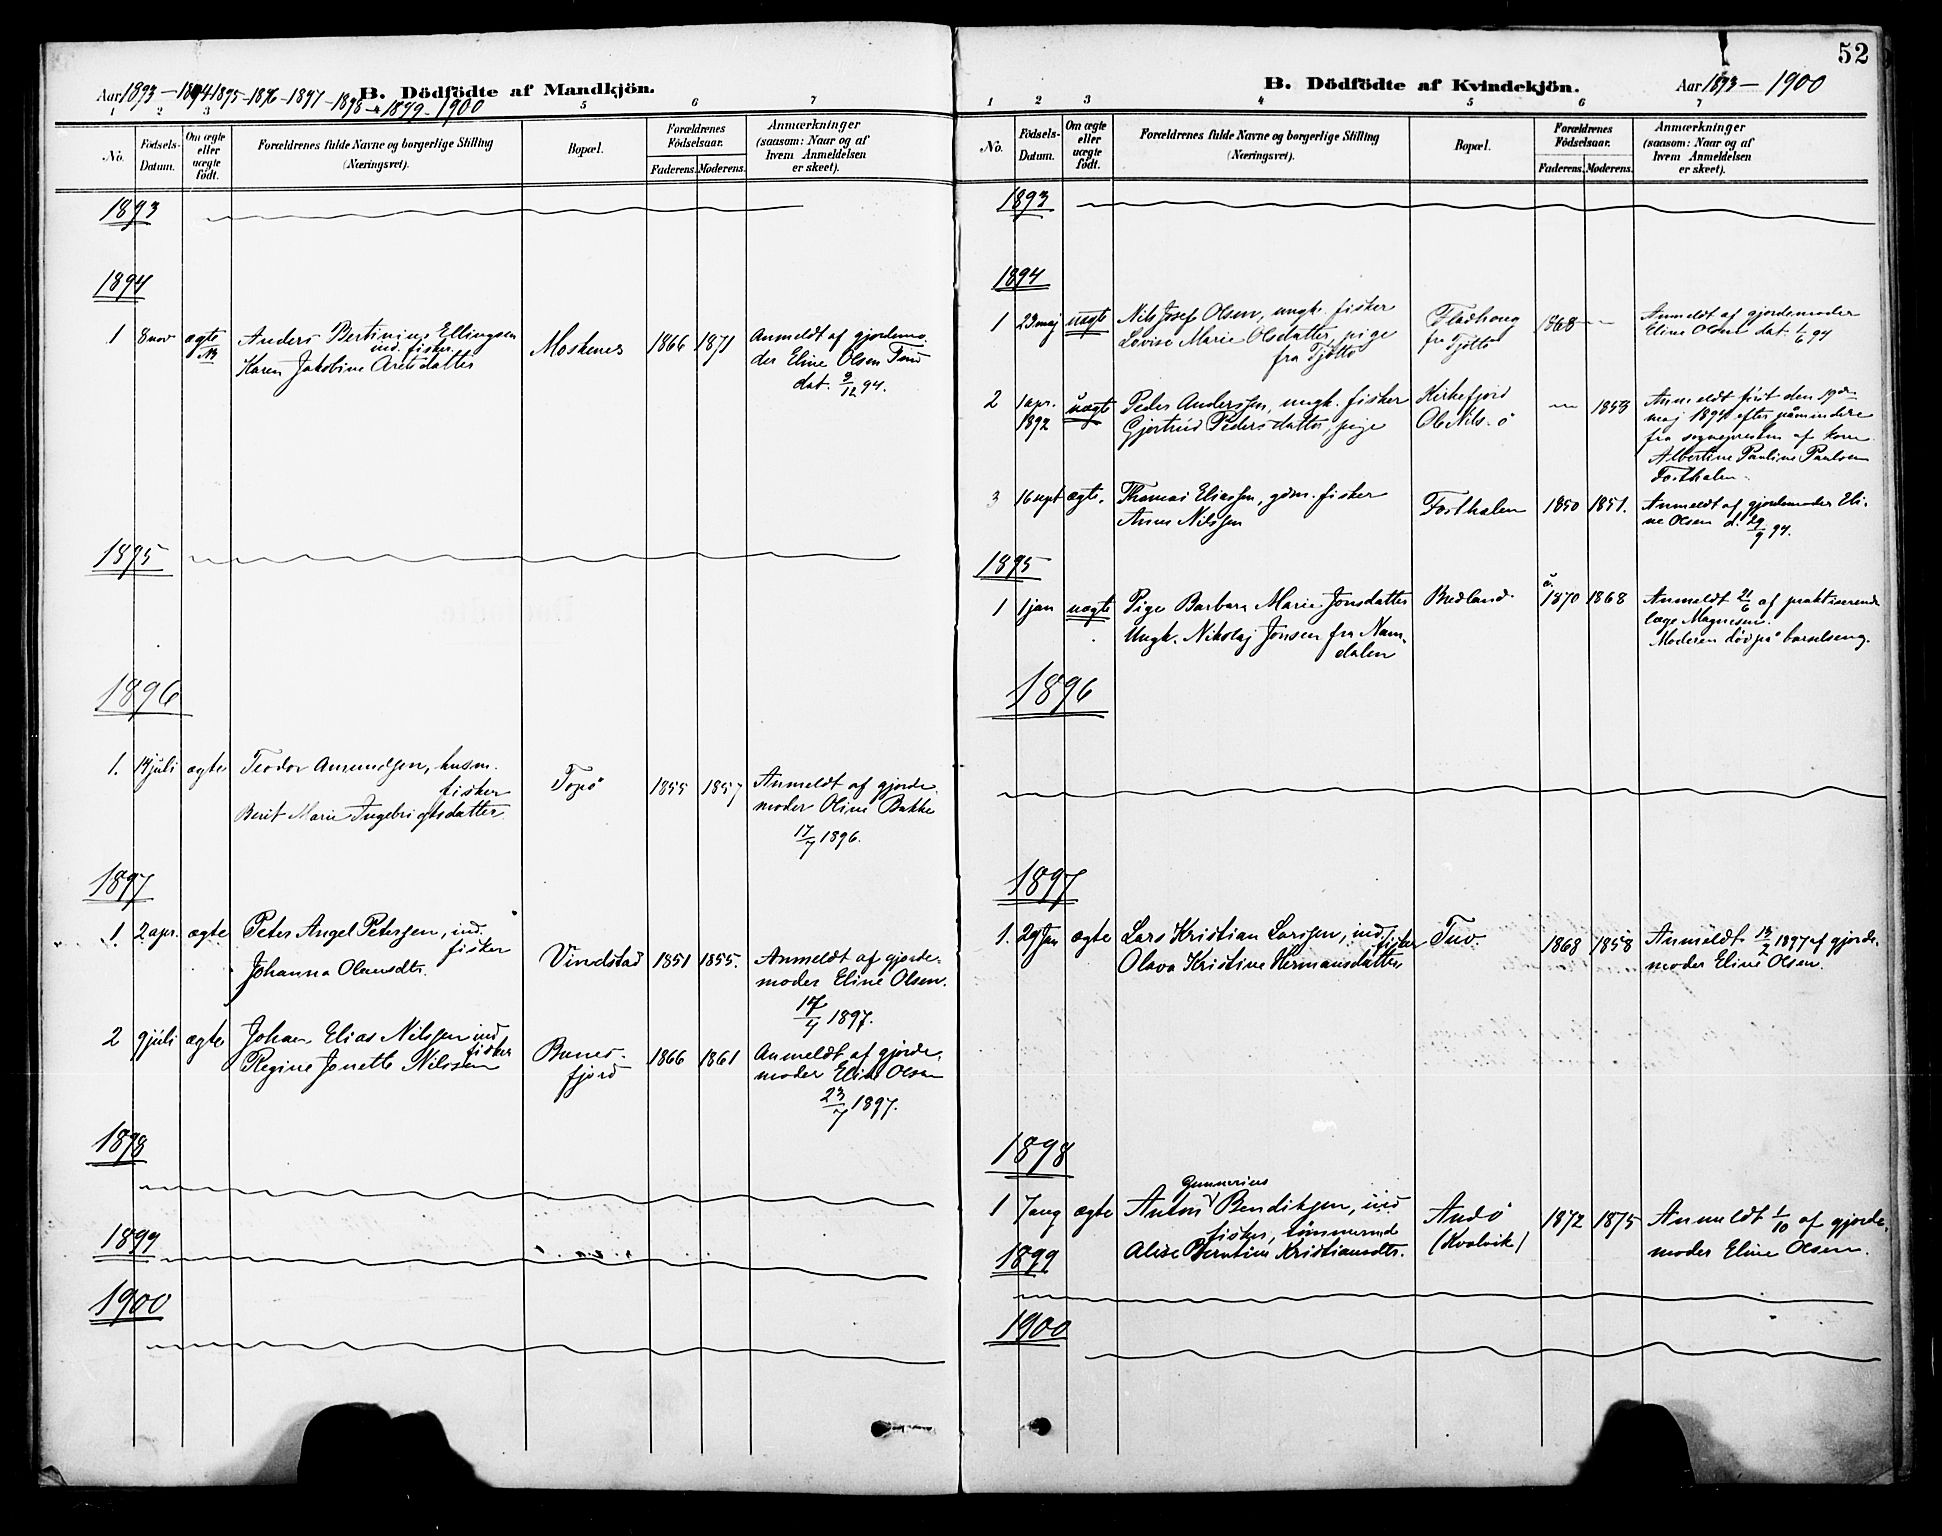 Aar 1893 - 1894 - 1895 - 1896 - 1897 - 1898 - 1899 - 1900
B. Dödfödte af Mandkjön.
1 2 3 4 5 6 7
No.
Födsels-Datum.
Om ægte eller uægte født.
Forældrenes fulde Navne og borgerlige Stilling
(Næringsvei).
Bopæl.
Forældrenes Födselsaar.
Faderens. Moderens.
Anmærkninger
(saasom: Naar og af
hvem Anmeldelsen
er skeet).
1893
1894
1 8 nov ægte Anders Bertinius Ellingsen
ind. fisker
Karen Jakobine Aretsdatter
Moskenes 1866 1871
Anmeldt af gjordemo-
der Eline Olsen Tind
dat. 9/12 94.
1895
1896
1. 14 juli ægte Teodor Amundsen, husm.
fisker
Berit Marie Ingebrigtsdatter
Topö 1855 1857
Anmeldt af gjorde-
moder Oline Bakke
17/7 1896.
1897
1. 2 apr. ægte Peter Angel Petersen, ind.
fisker
Johanna Olausdtr.
Vindstad 1851 1855.
Anmeldt af gjorde-
moder Eline Olsen.
17/4 1897.
2 9 juli ægte Johan Elias Nilssen ind
fisker
Regine Jenette Nilssen
Bunes-
fjord
1866 1861
Anmeldt af gjorde-
moder Eline Olsen
23/7 1897.
1898
1899
1900
52
B. Dödfödte af Kvindekjön.
Aar 1893 - 1900
1 2 3 4 5 6 7
No.
Födsels-Datum.
Om ægte eller uægte født.
Forældrenes fulde Navne og borgerlige Stilling
(Næringsvei).
Bopæl.
Forældrenes Födselsaar.
Faderens. Moderens.
Anmærkninger
(saasom: Naar og af
hvem Anmeldelsen
er skeet).
1893
1894
1 23 maj uægt Nils Josef Olsen, ungk. fisker
Lovise Marie Olsdatter, pige
fra Tjøtto
fra Tjøtto
1868
Anmeldt af gjordemoder
Eline Olsen dat. 1/6 94
2 1 apr. 1892 uægte Peder Anderssen, ungk. fisker
Gjertrud Pedersdatter, pige
Kirkefjord
Ole Nils. ö
1853
Anmeldt først den
maj 1894 efter påmindere
fra sognepresten af kone
Albertine Pauline Paulsen
Forsthalen.
3 16 sept ægte. Thomas Eliassen, gdm. fisker
Anne Nilssen
Forsthalen 1850 1851.
Anmeldt af gjordemoder Eli-
ne Olsen d. 29/9 94.
1895
1 1 jan uægte Pige Barbara Marie Jonsdatter
Ungk. Nikolaj Jonsen fra Nam-
dalen
Bredland
1870 1868
Anmeldt 21/6 af praktiserende
læge Magnesen.
Moderen død på barselseng.
1896
1897
1. 29 Jan ægte Lars Kristian Larssen, ind.
fisker
Olava Kristine Hermansdatter
Tuv. 1868 1858
Anmeldt 13/2 1897 af gjorde-
moder Eline Olsen.
1898
1 7 aug ægte Anton Gunnerius Bendiksen, ind
fisker, tömmermd
Alise Berntine Kristiansdtr.
Andö
(Kvalvik)
1872 1875
Anmeldt 1/10 af gjorde-
moder Eline Olsen.
1899
1900